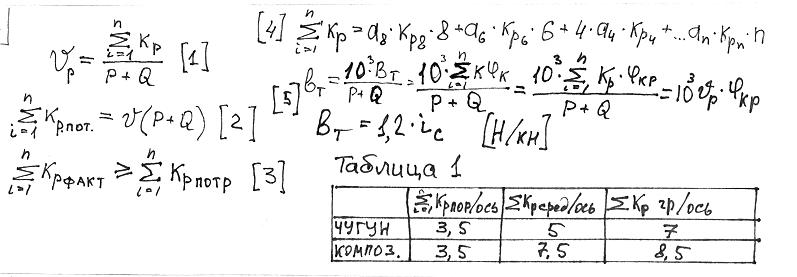 ϑp = Σ(i=1..n) Kp / (P + Q) [1]
Σ(i=1..n) Kр.пот. = ϑ(P+Q) [2]
Σ(i=1..n) Kр ФАКТ ≥ Σ(i=1..n) Kр ПОТР [3]
[4] Σ(i=1..n) Kp = a8 · Kp8 · 8 + a6 · Kp6 · 6 + 4 · a4 · Kp4 + ... an · Kpn · n
[5] вт = 10³·Вт / (P+Q) = 10³·Σ(i=1..n) Kφк / (P + Q) = 10³·Σ(i=1..n) Kp·φкр / (P + Q) = 10³ϑp·φкр
Вт = 1,2 · ic [Н/кН]
Таблица 1
Σ(i=1..n) Kрпор/ось ΣKрсред/ось ΣKр гр/ось
ЧУГУН 3,5 5 7
КОМПОЗ. 3,5 7,5 8,5